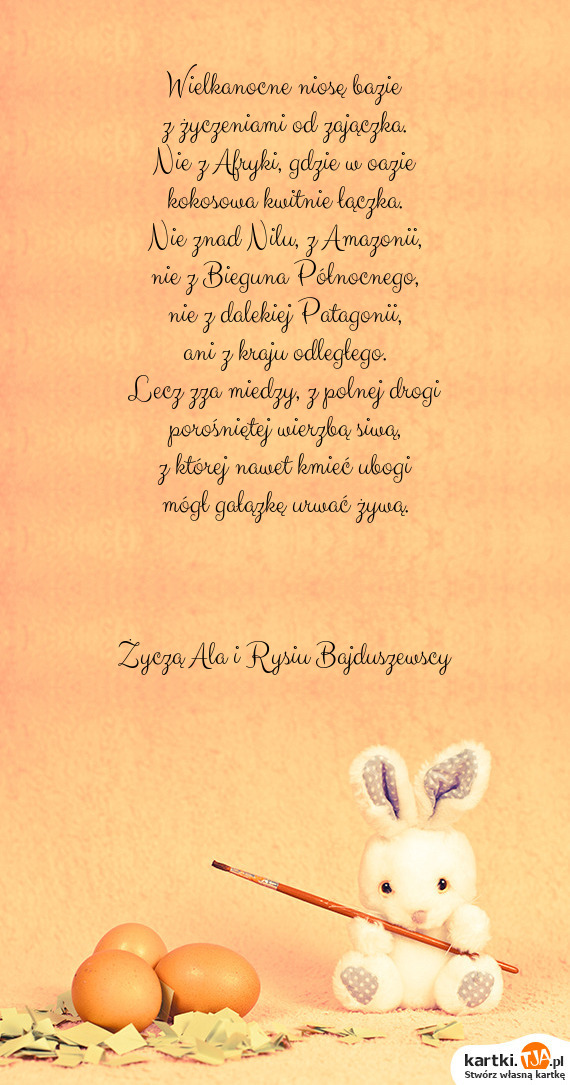 Wielkanocne niosę bazie
z życzeniami od zajączka.
Nie z Afryki, gdzie w oazie
kokosowa kwitnie łączka.
Nie znad Nilu, z Amazonii,
nie z Bieguna Północnego,
nie z dalekiej Patagonii,
ani z kraju odległego.
Lecz zza miedzy, z polnej drogi
porośniętej wierzbą siwą,
z której nawet kmieć ubogi
mógł gałązkę urwać żywą.
Życzą Ala i Rysiu Bajduszewscy
kartki.TJA.pl
Stwórz własną kartkę